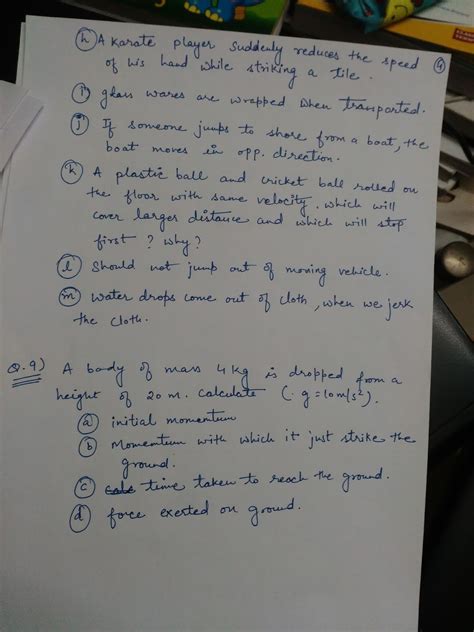 (h) A karate player suddenly reduces the speed (4)
of his hand while striking a tile.
(i) glass wares are wrapped when transported.
(j) If someone jumps to shore from a boat, the
boat moves in opp. direction.
(k) A plastic ball and cricket ball rolled on
the floor with same velocity. which will
cover larger distance and which will stop
first? Why?
(l) Should not jump out of moving vehicle.
(m) water drops come out of cloth, when we jerk
the cloth.
Q.9) A body of mass 4 kg is dropped from a
height of 20 m. Calculate (. g = 10 m/s²).
(a) initial momentum
(b) Momentum with which it just strike the
ground.
(c) time taken to reach the ground.
(d) force exerted on ground.